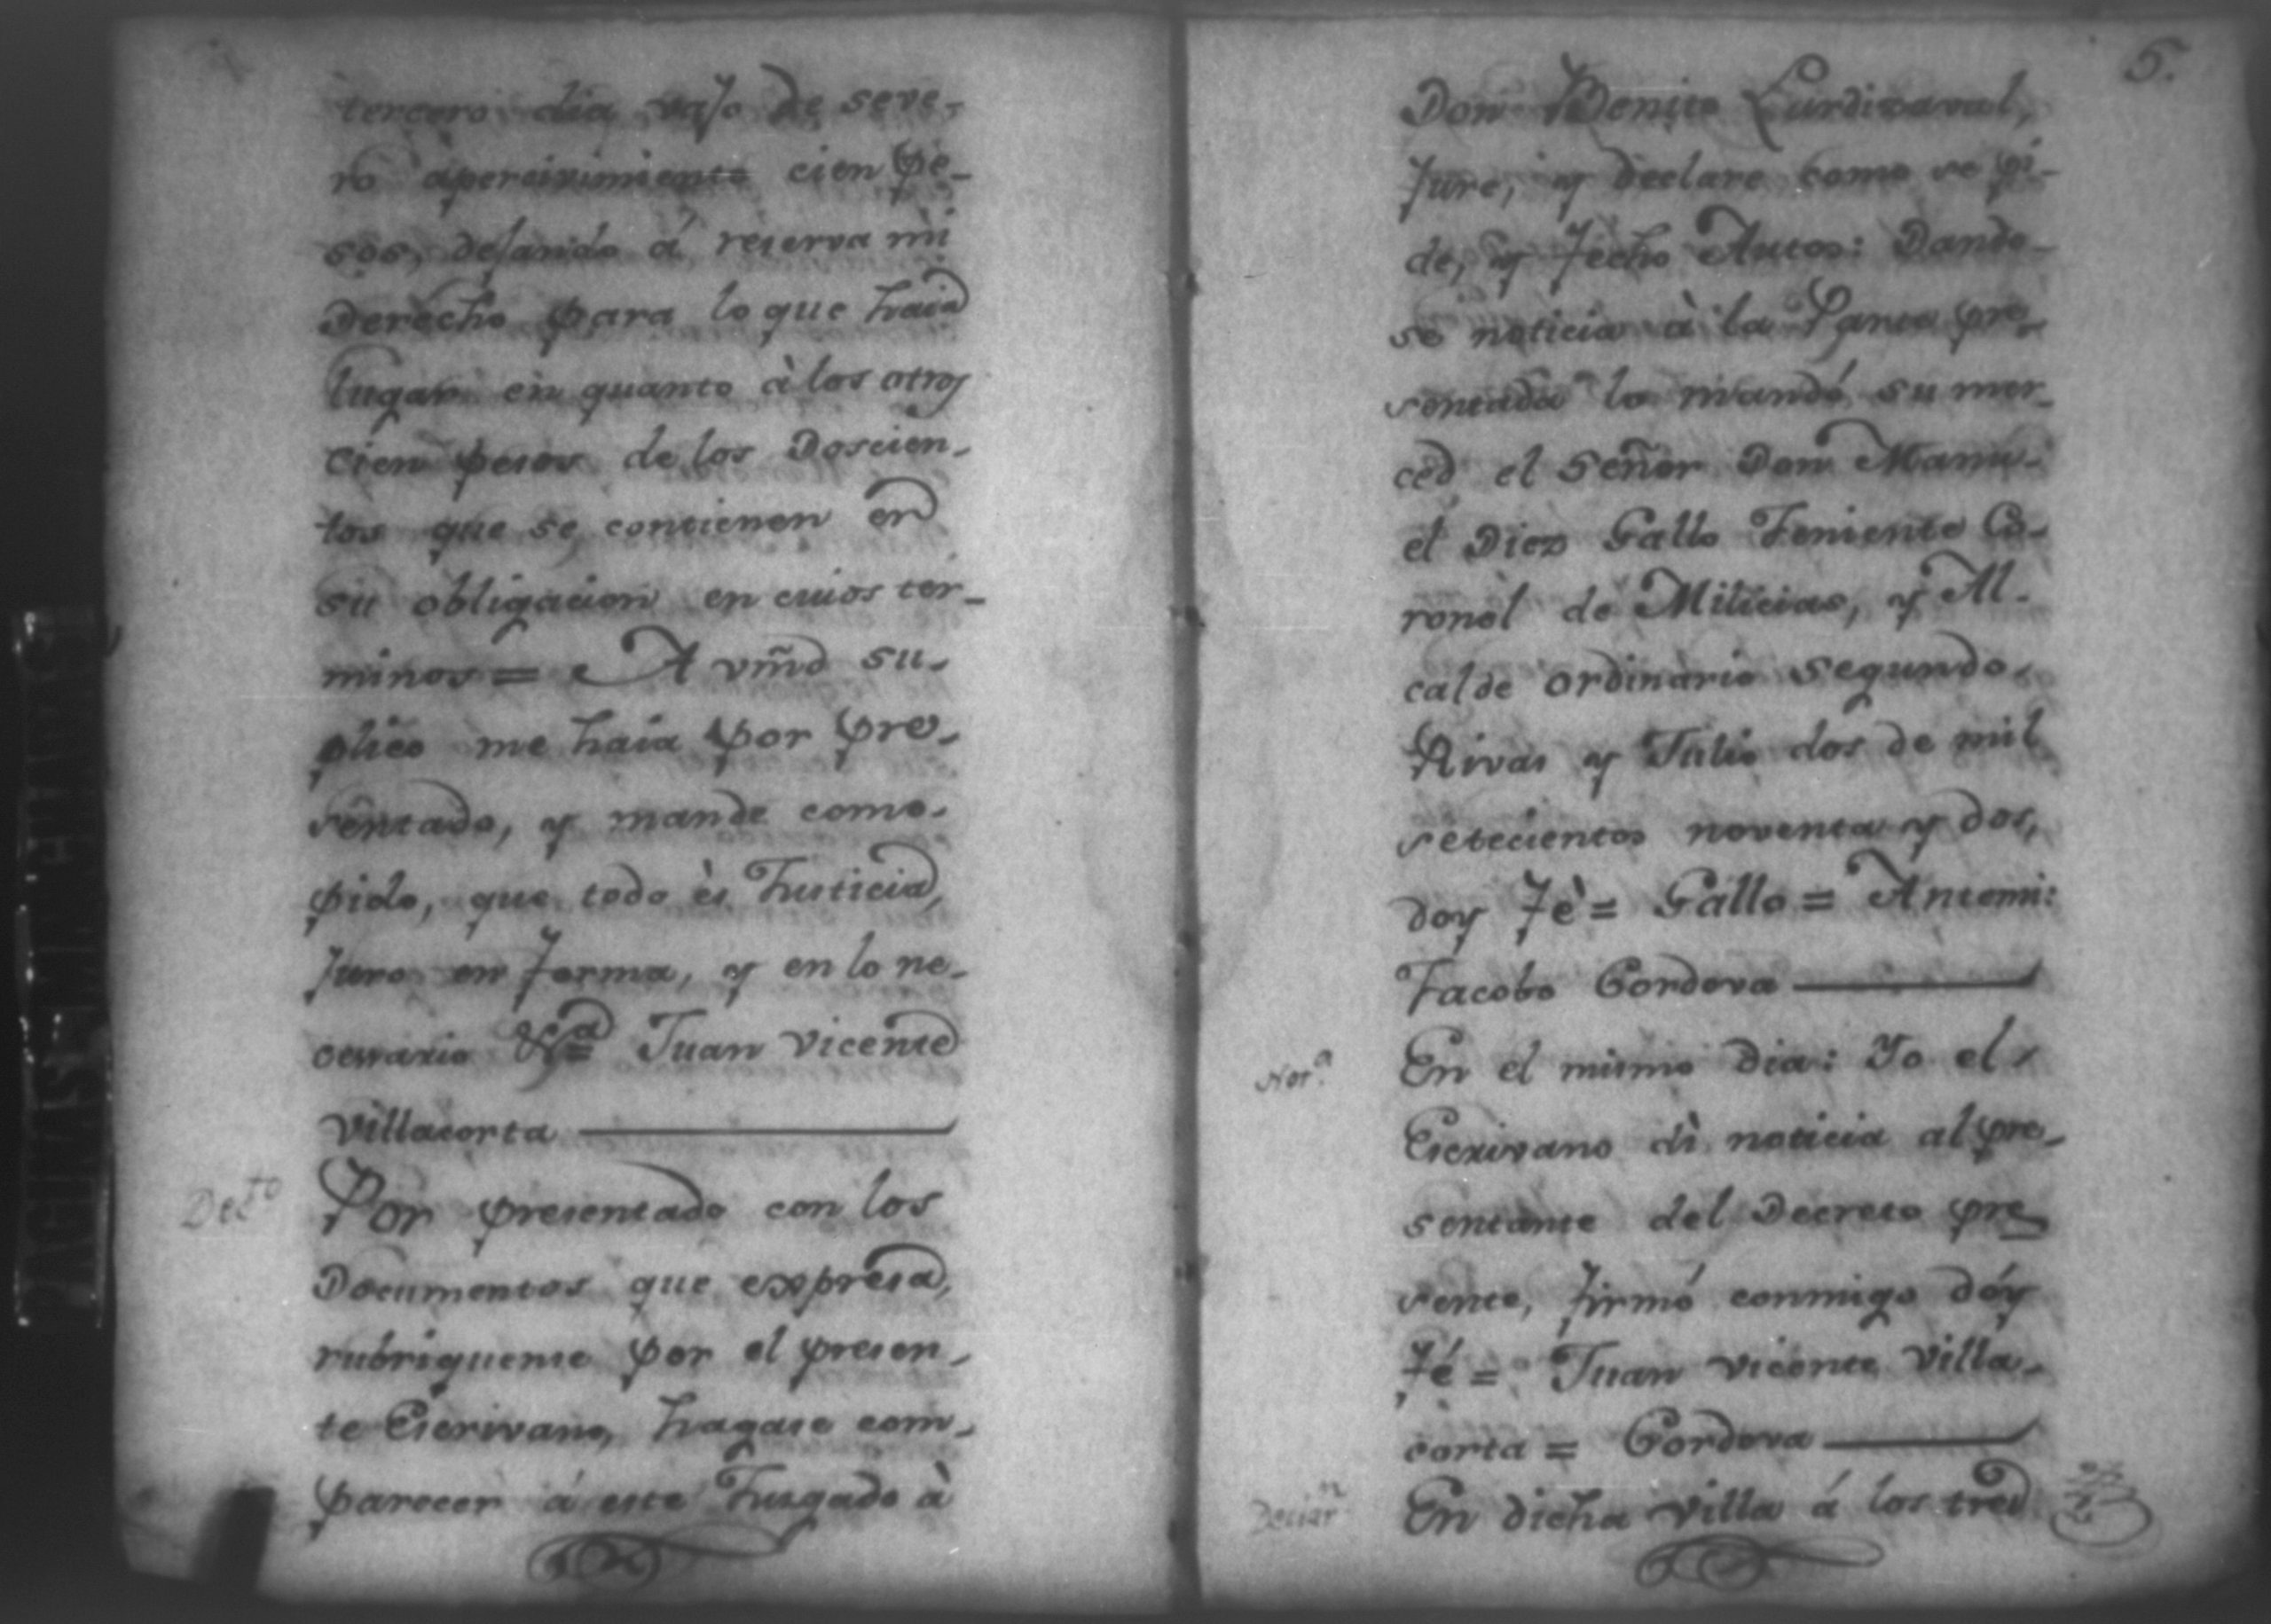 tercero dia vajo de seve-
ro apercivimiento cien pe-
sos, dejando á reserva mi
Derecho para lo que haia
lugar en quanto à los otros
cien pesos de los Doscien-
tos que se contienen en
su obligacion en cuios ter-
minos = A vm̃d su-
plico me haia por pre-
sentado, y mande como
pido, que todo ès Justicia,
Juro en forma, y en lo ne-
cessario &ª = Juan Vicente
Villacorta
Decto Por presentado con los
Documentos que expresa,
rubriquense por el presen-
te Escrivano, hagase com-
parecer á este Jusgado à
5.
Don Benito Lurdisaval,
Jure, y declare como se pi-
de, y fecho Autos: Dando-
se noticia à la Parte pre-
sentada lo mandó su mer-
ced el Señor Don Manu-
el Diez Gallo Teniente Co-
ronel de Milicias, y Al-
calde ordinario segundo.
Rivas y Julio dos de mil
setecientos noventa y dos,
doy fè = Gallo = Antemi:
Jacobo Cordova
Notª. En el mismo dia: Yo el
Escrivano dì noticia al pre-
sentante del Decreto pre-
sente, firmó conmigo dóy
fé = Juan Vicente Villa-
corta = Cordova
Declarn En dicha villa á los tres